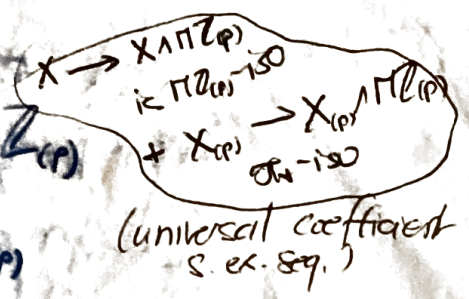 X → X∧MZ_(p)
is MZ_(p)-iso
Z_(p)
+ X_(p) → X_(p)∧MZ_(p)
π_*-iso
(universal coefficient
p)
s. ex. seq.)